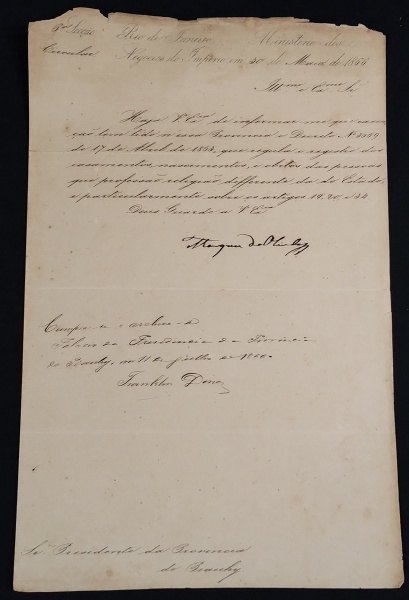 4ª Secção Rio de Janeiro Ministerio dos
Circular Negocios do Imperio em 30 de Maio de 1866
Illmo e Exmo Sr
Haja V Exª de informar me que execu
ção tem tido n'essa Provincia o Decreto Nº 3069
de 17 de Abril de 1863, que regula o registro dos
casamentos, nascimentos, e obitos das pessoas
que professão religião differente da do Estado,
e particularmente sobre os artigos 19, 20, e
Deus Guarde a V Exª
Marquez de Olinda
Cumpra-se e archive-se
Palacio da Presidencia da Provincia
do Piauhy, em 11 de Julho de
Franklin Doria
Sr. Presidente da Provincia
do Piauhy